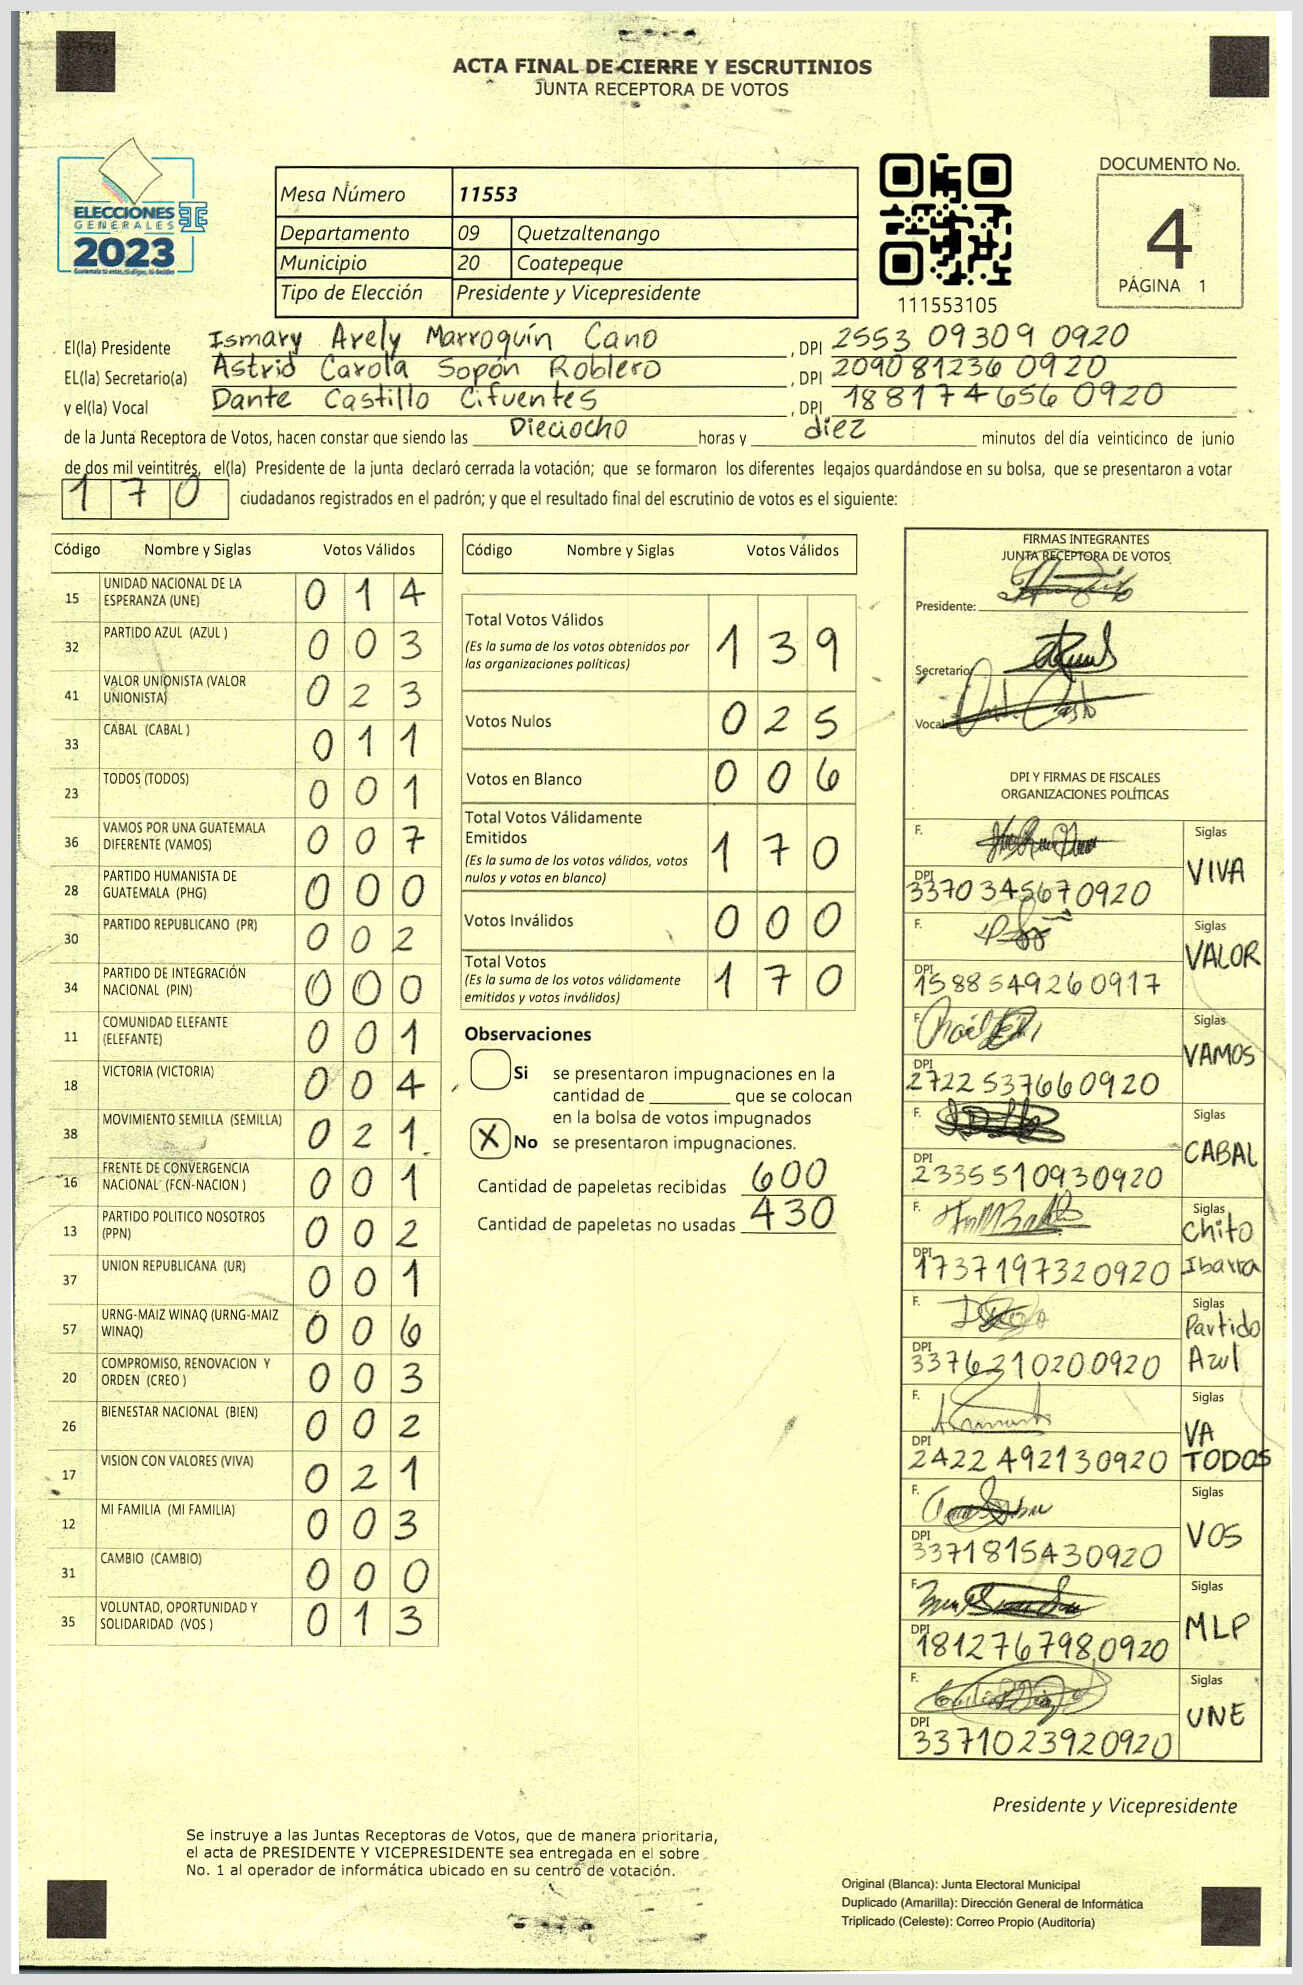 ACTA FINAL DE CIERRE Y ESCRUTINIOS
JUNTA RECEPTORA DE VOTOS
ELECCIONES
GENERALES
2023
Mesa Número 11553
Departamento 09 Quetzaltenango
Municipio 20 Coatepeque
Tipo de Elección Presidente y Vicepresidente
111553105
DOCUMENTO No.
4
PÁGINA 1
El(la) Presidente Ismary Arely Marroquín Cano , DPI 2553 09309 0920
EL(la) Secretario(a) Astrid Carola Sopón Roblero , DPI 2090 81236 0920
y el(la) Vocal Dante Castillo Cifuentes , DPI 1881 74656 0920
de la Junta Receptora de Votos, hacen constar que siendo las Dieciocho horas y diez minutos del día veinticinco de junio
de dos mil veintitrés, el(la) Presidente de la junta declaró cerrada la votación; que se formaron los diferentes legajos guardándose en su bolsa, que se presentaron a votar
170 ciudadanos registrados en el padrón; y que el resultado final del escrutinio de votos es el siguiente:
Código Nombre y Siglas Votos Válidos
15 UNIDAD NACIONAL DE LA ESPERANZA (UNE) 014
32 PARTIDO AZUL (AZUL ) 003
41 VALOR UNIONISTA (VALOR UNIONISTA) 023
33 CABAL (CABAL ) 011
23 TODOS (TODOS) 001
36 VAMOS POR UNA GUATEMALA DIFERENTE (VAMOS) 007
28 PARTIDO HUMANISTA DE GUATEMALA (PHG) 000
30 PARTIDO REPUBLICANO (PR) 002
34 PARTIDO DE INTEGRACIÓN NACIONAL (PIN) 000
11 COMUNIDAD ELEFANTE (ELEFANTE) 001
18 VICTORIA (VICTORIA) 004
38 MOVIMIENTO SEMILLA (SEMILLA) 021
16 FRENTE DE CONVERGENCIA NACIONAL (FCN-NACION ) 001
13 PARTIDO POLITICO NOSOTROS (PPN) 002
37 UNION REPUBLICANA (UR) 001
57 URNG-MAIZ WINAQ (URNG-MAIZ WINAQ) 006
20 COMPROMISO, RENOVACION Y ORDEN (CREO ) 003
26 BIENESTAR NACIONAL (BIEN) 002
17 VISION CON VALORES (VIVA) 021
12 MI FAMILIA (MI FAMILIA) 003
31 CAMBIO (CAMBIO) 000
35 VOLUNTAD, OPORTUNIDAD Y SOLIDARIDAD (VOS ) 013
Código Nombre y Siglas Votos Válidos
Total Votos Válidos 139
(Es la suma de los votos obtenidos por
las organizaciones políticas)
Votos Nulos 025
Votos en Blanco 006
Total Votos Válidamente
Emitidos 170
(Es la suma de los votos válidos, votos
nulos y votos en blanco)
Votos Inválidos 000
Total Votos 170
(Es la suma de los votos válidamente
emitidos y votos inválidos)
Observaciones
Si se presentaron impugnaciones en la
cantidad de ________ que se colocan
en la bolsa de votos impugnados
X No se presentaron impugnaciones.
Cantidad de papeletas recibidas 600
Cantidad de papeletas no usadas 430
FIRMAS INTEGRANTES
JUNTA RECEPTORA DE VOTOS
Presidente:
Secretario
Vocal
DPI Y FIRMAS DE FISCALES
ORGANIZACIONES POLÍTICAS
F. Siglas VIVA
DPI 3370345670920
F. Siglas VALOR
DPI 1588549260917
F. Siglas VAMOS
DPI 2722537660920
F. Siglas CABAL
DPI 2335510930920
F. Siglas Chito Ibarra
DPI 1737197320920
F. Siglas Partido Azul
DPI 3376210200920
F. Siglas VA TODOS
DPI 2422492130920
F. Siglas VOS
DPI 3371815430920
F. Siglas MLP
DPI 1812767980920
F. Siglas UNE
DPI 3371023920920
Presidente y Vicepresidente
Se instruye a las Juntas Receptoras de Votos, que de manera prioritaria,
el acta de PRESIDENTE Y VICEPRESIDENTE sea entregada en el sobre
No. 1 al operador de informática ubicado en su centro de votación.
Original (Blanca): Junta Electoral Municipal
Duplicado (Amarilla): Dirección General de Informática
Triplicado (Celeste): Correo Propio (Auditoría)